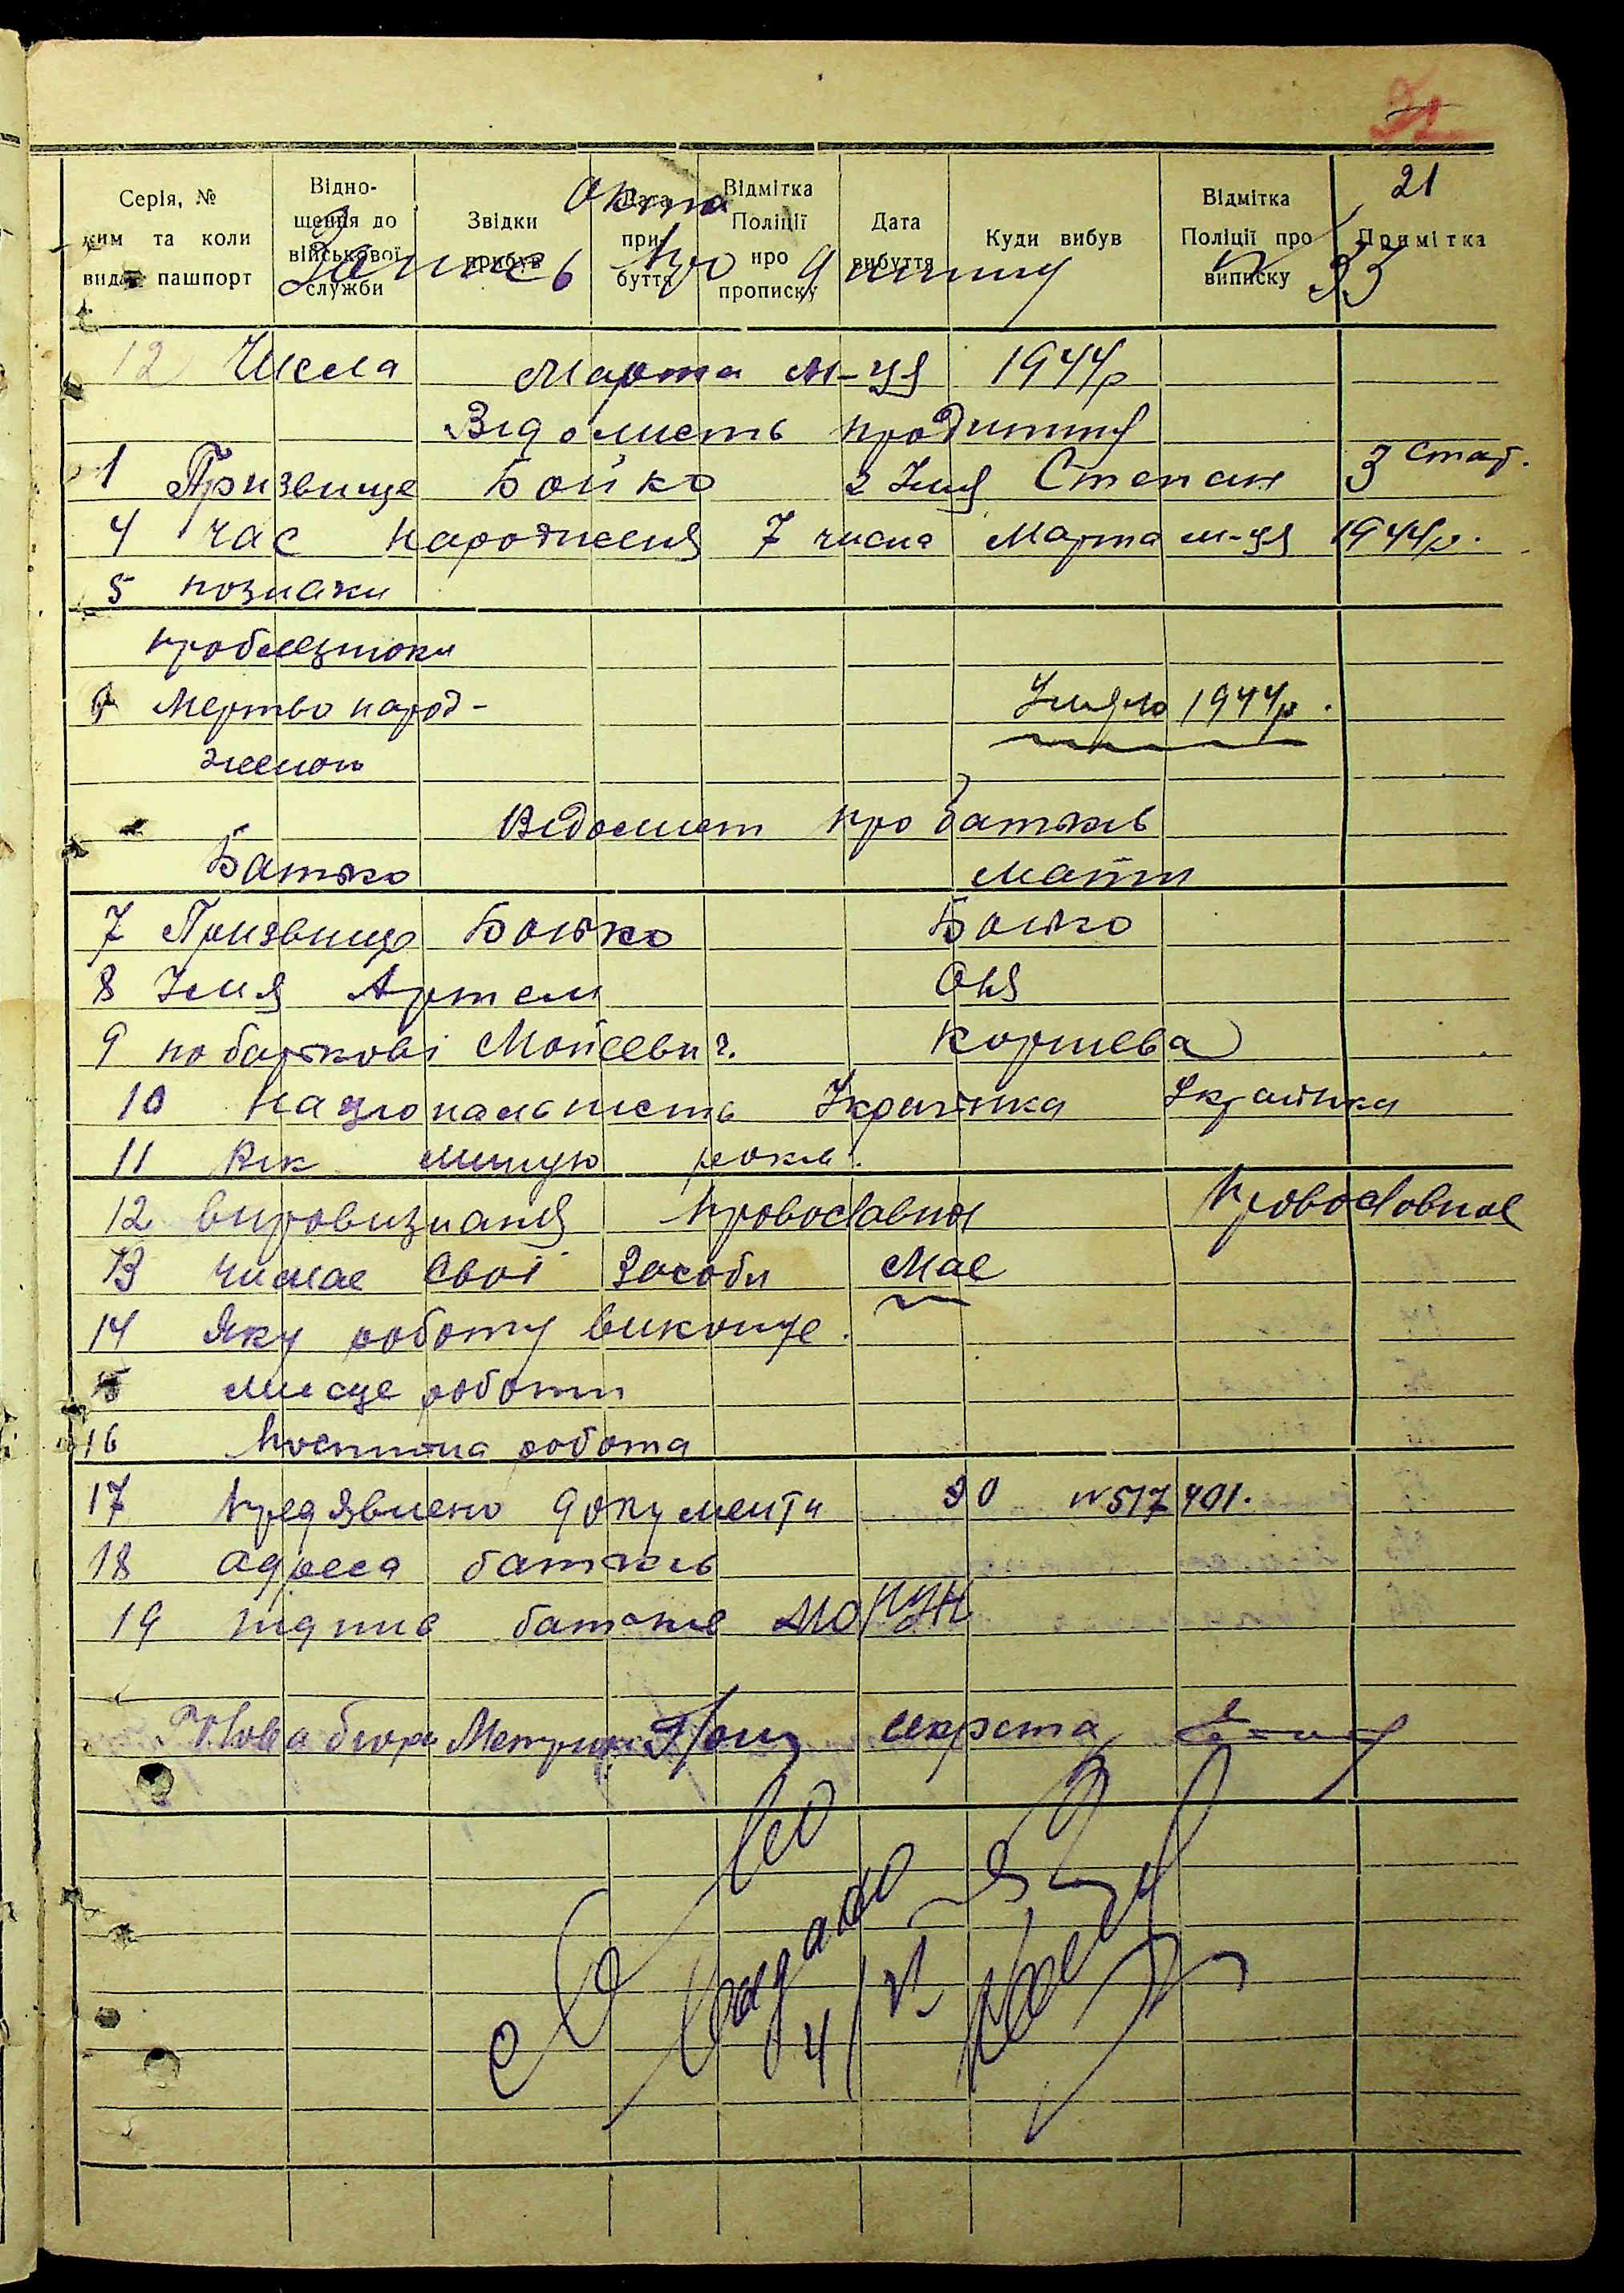 21
Серія, № ким та коли видан пашпорт
Відно-шення до військової служби
Звідки прибув
Дата при буття
Відмітка Поліції про прописку
Дата вибуття
Куди вибув
Відмітка Поліції про виписку
Примітка
Акта
Запись про дитину № 33
12 Числа Марта м-ця 1944р
Відомисть продитину
1 Призвище Бойко 2 Имя Степан 3 стат.
4 час народженя 7 числа Марта м-ця 1944р.
5 познаки
проблезнюки
6 Мертво народ-
женого 1944р.
Відомист про батьків
Батько Мати
7 Призвище Бойко Бойко
8 Имя Артем Оня
9 по батькові Мойсеевич. Корнева
10 Націонал ьнисть Украінка Украінка
11 Вік минуло роки.
12 вировизнаня провославная провославная
13 чимае своі засоби Мае
14 Яку роботу виконуе.
15 мисце роботи
16 Постійна робота
17 предявлено документи 30 №517401.
18 адреса батьків
19 підпис батьків
Голова бюра Метрик секрета